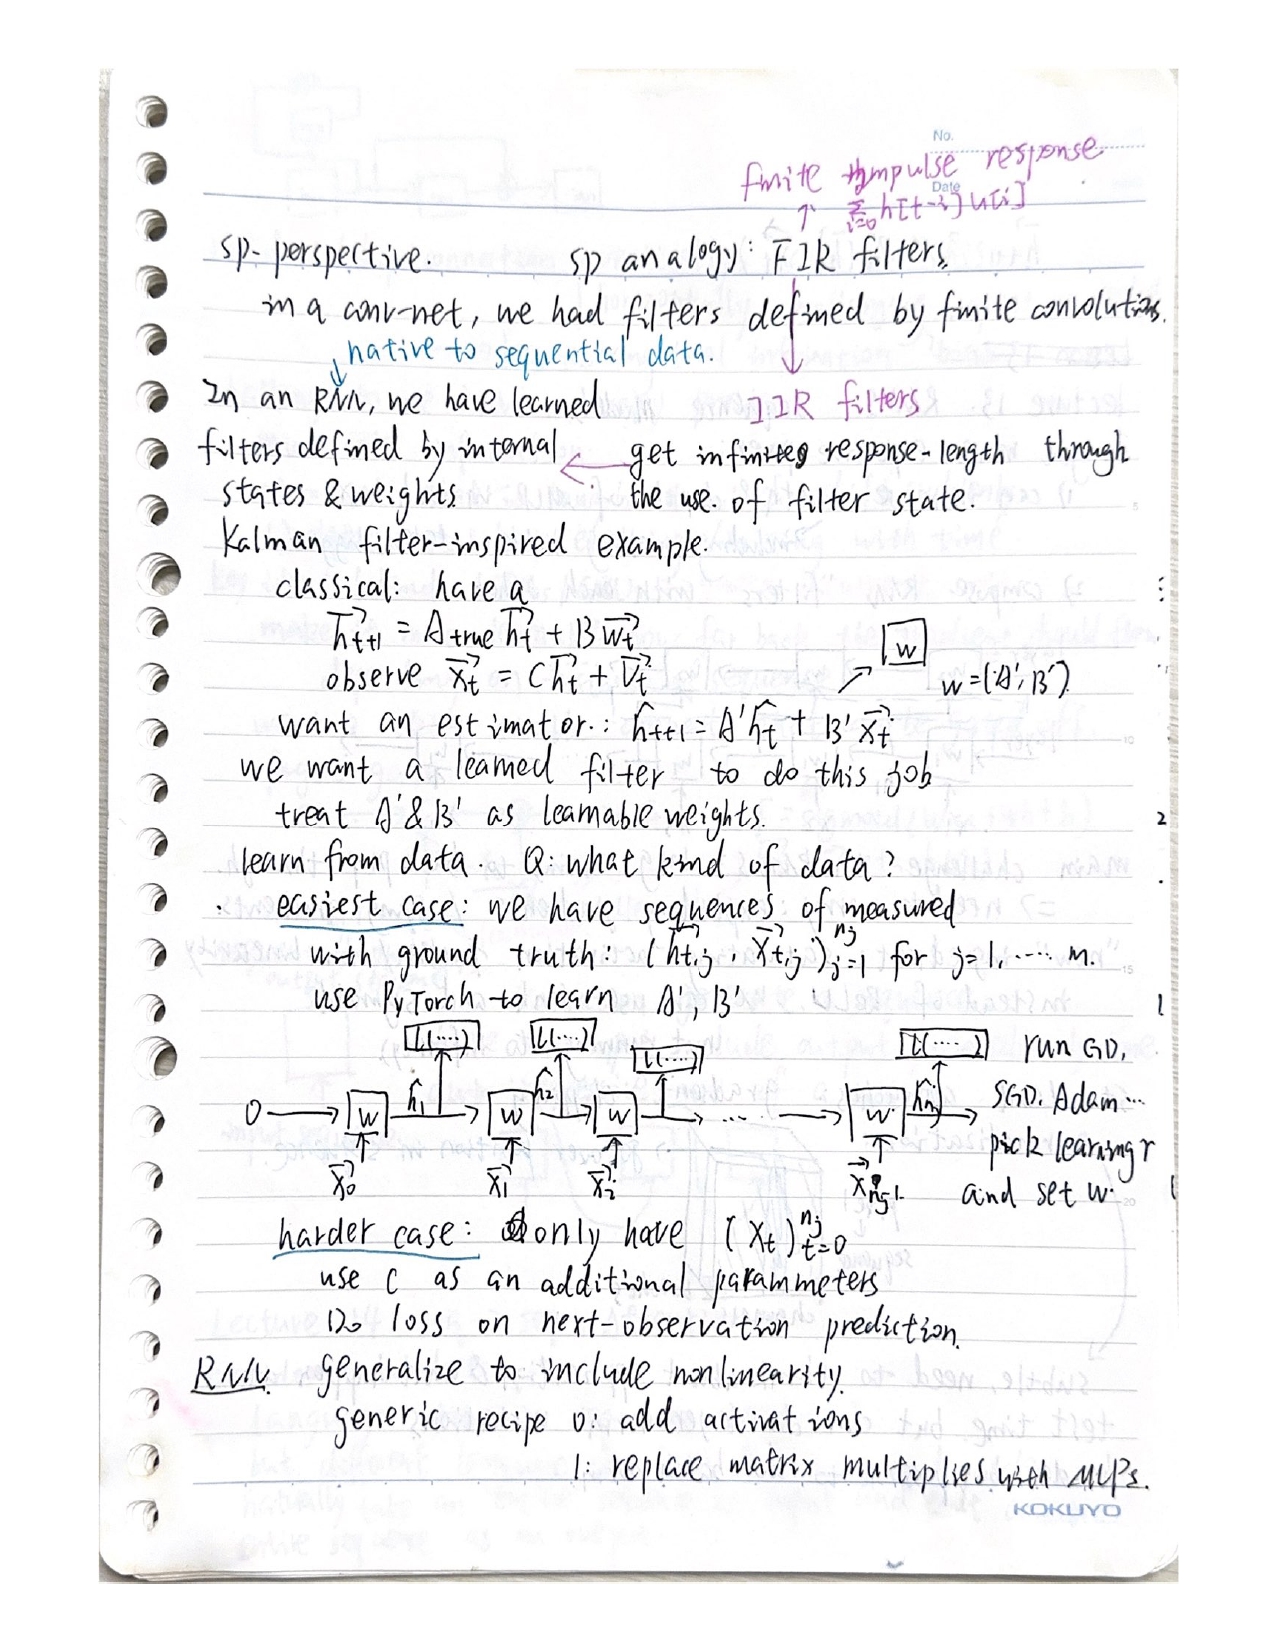 No.
finite impulse response
Date
Σ i=0 h[t-i]u[i]
sp-perspective. sp analogy: FIR filters
in a conv-net, we had filters defined by finite convolutions.
native to sequential data.
In an RNN, we have learned IIR filters
filters defined by internal get infinite response-length through
states & weights. the use of filter state.
Kalman filter-inspired example.
classical: have a
h⃗t+1 = Atrue h⃗t + B w⃗t
W
observe x⃗t = C h⃗t + v⃗t w=(A', B')
want an estimator.: ĥt+1 = A'ĥt + B' x⃗t
we want a learned filter to do this job
treat A' & B' as learnable weights.
learn from data. Q: what kind of data?
easiest case: we have sequences of measured
with ground truth: (h⃗t,j, x⃗t,j)j=1^nj for j=1, ..... m.
use PyTorch to learn A', B'
L(....) L(....) L(....) L(....) run GD,
0 W ĥ1 W ĥ2 W ... W ĥnj SGD, Adam...
pick learning r
x⃗0 x⃗1 x⃗2 x⃗nj-1 and set w.
harder case: only have (xt)t=0^nj
use C as an additional parammeters
Do loss on next-observation prediction.
RNN. generalize to include nonlinearity.
generic recipe 0: add activations
1: replace matrix multiplies with MLPs.
KOKUYO